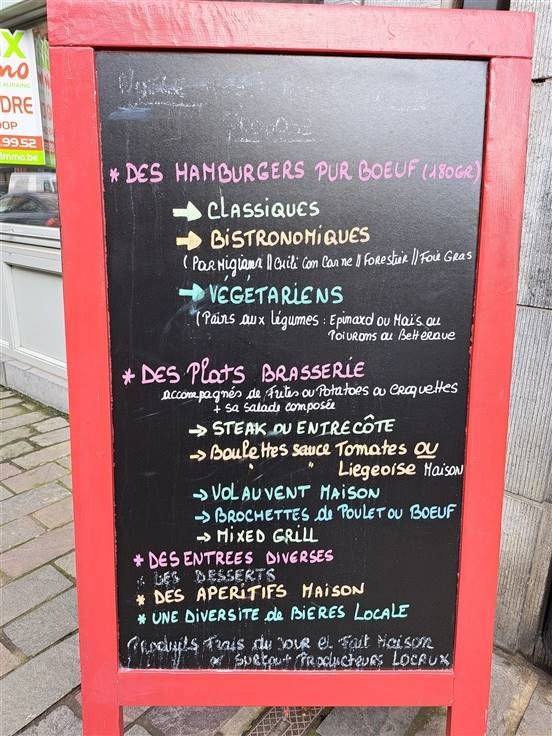 X
mo
DRE
OOP
.99.52
immo.be
propose
* DES HAMBURGERS PUR BOEUF (180GR)
→ CLASSIQUES
→ BISTRONOMIQUES
(PARMIGIANA // Chili Con Carne // Forestier // Foie Gras
→ VEGETARIENS
(Pains aux légumes : Epinard ou Maïs ou
Poivrons ou Betterave
* DES Plats BRASSERIE
accompagnés de Frites ou Potatoes ou Croquettes
+ sa salade composée
→ STEAK OU ENTRECÔTE
→ Boulettes sauce Tomates OU
" " Liegeoise MAISON
→ VOLAUVENT MAISON
→ BROCHETTES de POULET OU BOEUF
→ MIXED GRILL
* DES ENTREES DIVERSES
* LES DESSERTS
* DES APERITIFS MAISON
* UNE DIVERSITE de BIERES LOCALE
Produits Frais du Jour et Fait Maison
SURTOUT PRODUCTEURS LOCAUX